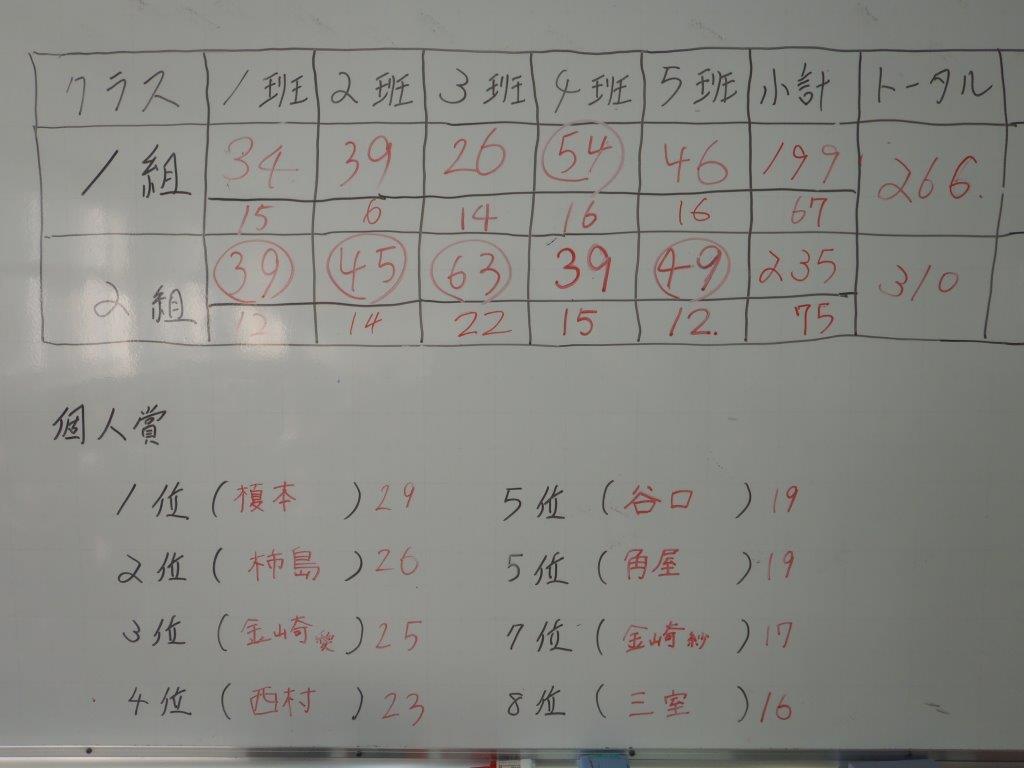 クラス 1班 2班 3班 4班 5班 小計 トータル
1組 34 39 26 54 46 199 266.
15 6 14 16 16 67
2組 39 45 63 39 49 235 310
12 14 22 15 12. 75
個人賞
1位(榎本)29 5位(谷口)19
2位(柿島)26 5位(角屋)19
3位(金崎愛)25 7位(金崎紗)17
4位(西村)23 8位(三室)16